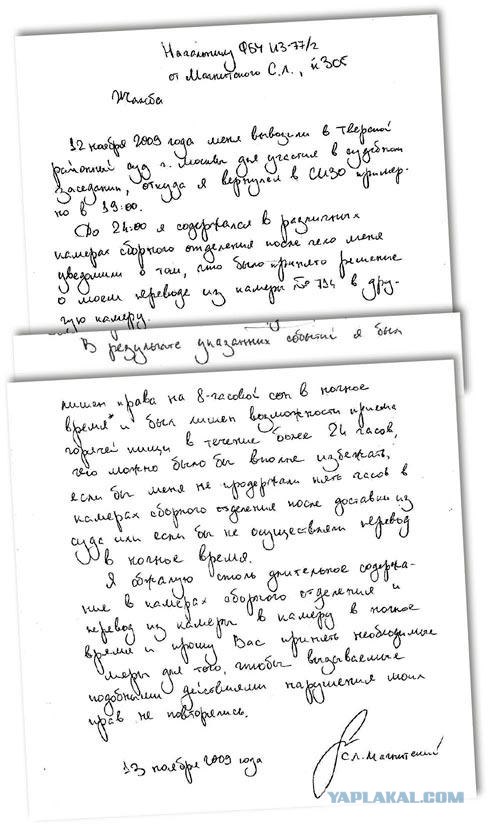 Начальнику ФБУ ИЗ-77/2
от Магнитского С.Л.,
Жалоба
12 ноября 2009 года меня вывозили в Тверской
районный суд г. Москвы для участия в судебном
заседании, откуда я вернулся в СИЗО пример-
но в 19:00.
До 24:00 я содержался в различных
камерах сборного отделения после чего меня
уведомили о том, что было принято решение
о моем переводе из камеры № 714 в дру-
гую камеру.
В результате указанных событий я был
лишен права на 8-часовой сон в ночное
время* и был лишен возможности приема
горячей пищи в течение более 24 часов,
чего можно было бы вполне избежать,
если бы меня не продержали пять часов в
камерах сборного отделения после доставки из
суда или если бы не осуществляли перевод
в ночное время.
Я обжалую столь длительное содержа-
ние в камерах сборного отделения и
перевод из камеры в камеру в ночное
время и прошу Вас принять необходимые
меры для того, чтобы вызываемые
подобными действиями нарушения моих
прав не повторялись.
13 ноября 2009 года
С.Л. Магнитский
YAPLAKAL.COM